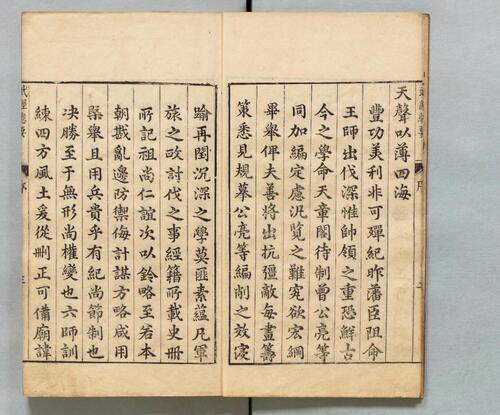 天聲以薄四海
豐功美利非可殫紀昨藩臣阻命
王師出伐深惟帥領之重恐鮮古
今之學命天章閣待制曾公亮等
同加編定慮汎覽之難究欲宏綱
畢舉俾夫善將出抗彊敵每畫籌
策悉見規摹公亮等編削之效寖
踰再閏沉深之學莫匪素蘊凡軍
旅之政討伐之事經籍所載史冊
所記祖尚仁誼次以鈐略至若本
朝戡亂邊防禦侮計謀方略咸用
槩舉且用兵貴乎有紀尚節制也
决勝至于無形尚權變也六師訓
練四方風土爰從刪正可備廟諱
武經總要
序
三